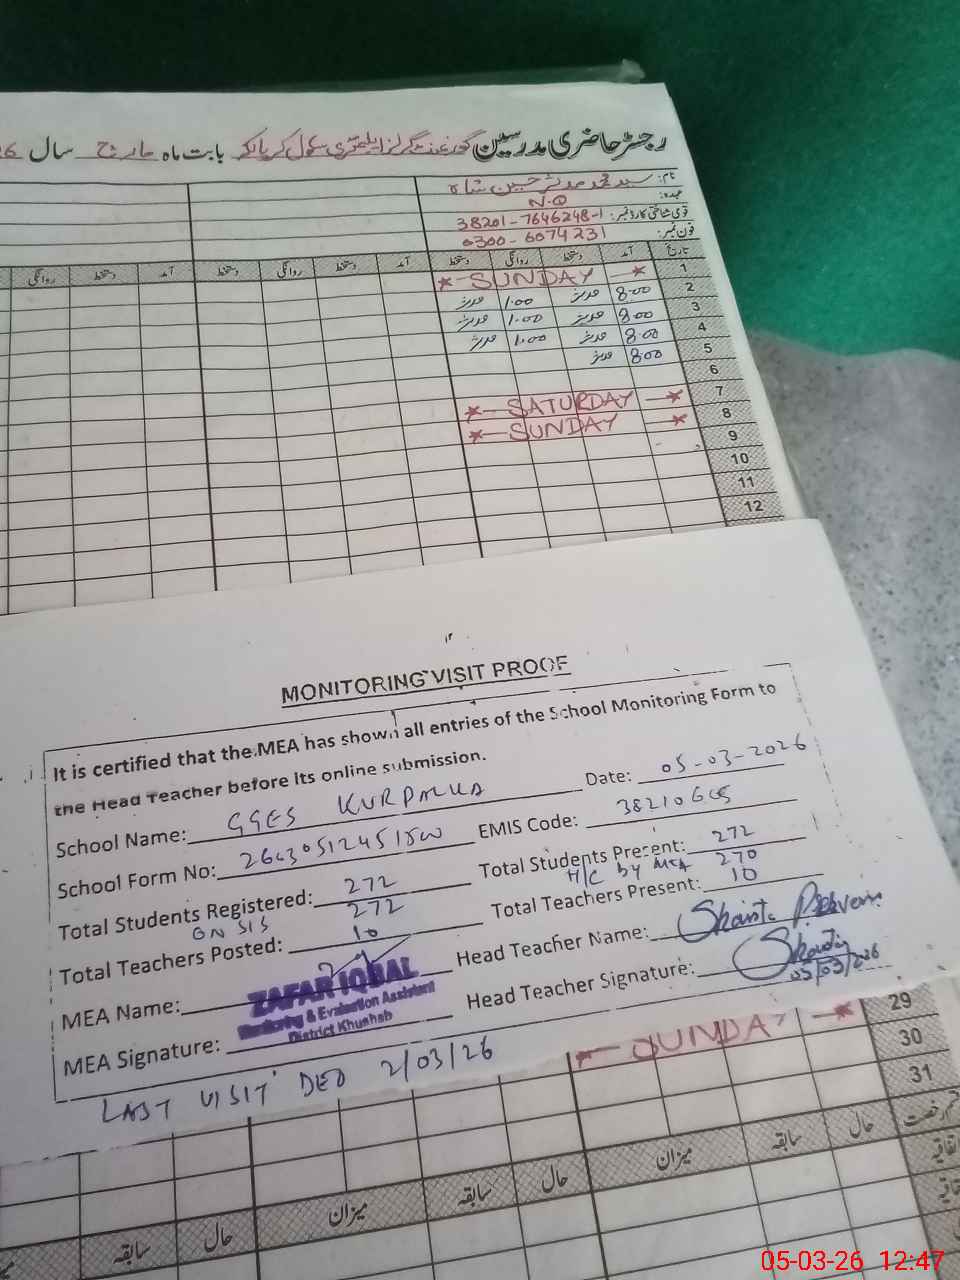 رجسٹر حاضری مدرسین گورنمنٹ گرلز ایلیمنٹری سکول کرپالکہ بابت ماہ مارچ سال
نام: سید محمد مدثر حسین شاہ
عہدہ: N.Q
قومی شناختی کارڈ نمبر: 38201-7646248-1
فون نمبر: 0300-6074231
تاریخ آمد دستخط روانگی دستخط آمد دستخط روانگی آمد دستخط روانگی
1 SUNDAY
2 8:00 مدثر 1:00 مدثر
3 8:00 مدثر 1:00 مدثر
4 8:00 مدثر 1:00 مدثر
5 8:00 مدثر
6
7 SATURDAY
8 SUNDAY
9
10
11
12
MONITORING VISIT PROOF
It is certified that the MEA has shown all entries of the School Monitoring Form to
the Head Teacher before Its online submission.
School Name: GGES KURPALKA Date: 05-03-2026
School Form No: EMIS Code:
Total Students Registered: 272 Total Students Present: 272
ON SIS 272 H/C by MEA 270
Total Teachers Posted: 10 Total Teachers Present: 10
MEA Name: ZAFAR IQBAL Head Teacher Name: Shaista Parveen
Monitoring & Evaluation Assistant
District Khushab
MEA Signature: Head Teacher Signature: 05/03/2026
LAST VISIT DED 2/03/26
29 SUNDAY
30
31
حال سابقہ میزان حال سابقہ میزان حال سابقہ
05-03-26 12:47